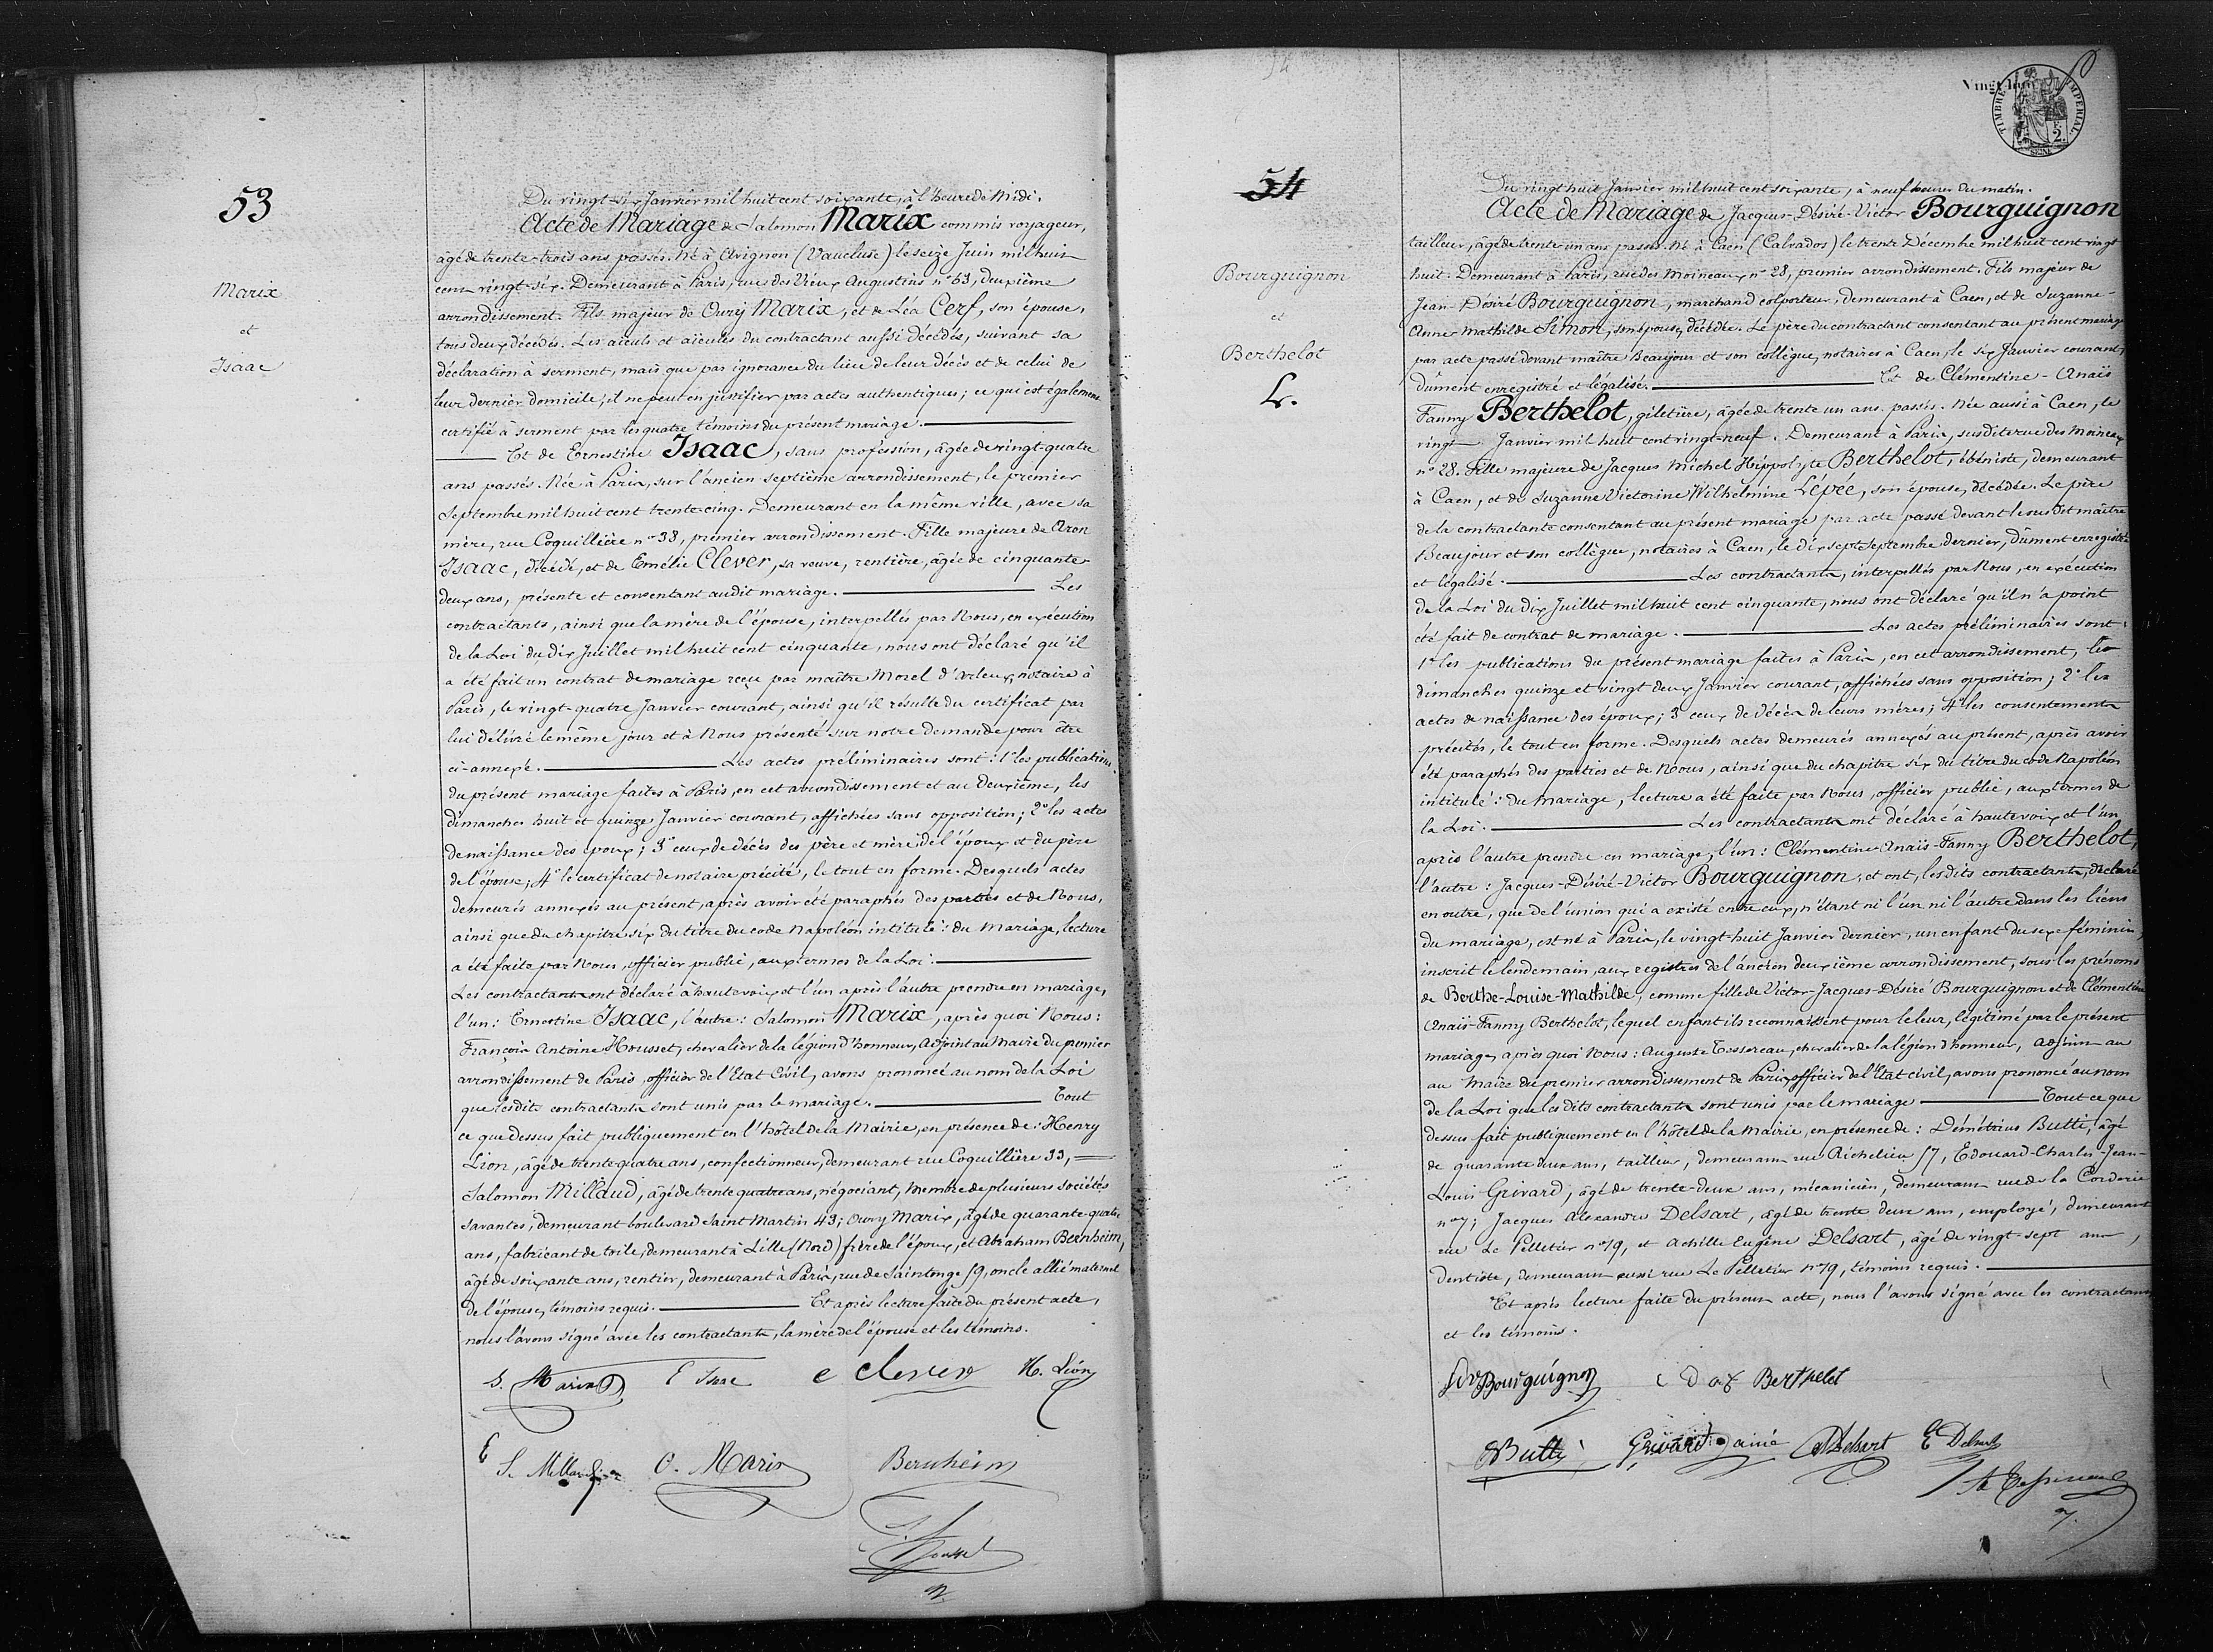 53
Marix
et
Isaac
Du vingt-six Janvier mil huit cent soixante, à l'heure de Midi.
Acte de Mariage de Salomon Marix commis voyageur,
âgé de trente-trois ans passés. Né à Avignon (Vaucluse) le seize Juin mil huit
cent vingt-six. Demeurant à Paris, rue des Vieux Augustins n° 63, deuxième
arrondissement. Fils majeur de Oury Marix, et de Léa Cerf, son épouse,
tous deux décédés. Les aïeuls et aïeules du contractant aussi décédés, suivant sa
déclaration à serment, mais que par ignorance du lieu de leur décès et de celui de
leur dernier domicile, il ne peut en justifier par actes authentiques; ce qui est également
certifié à serment par les quatre témoins du présent mariage.
Et de Ernestine Isaac, sans profession, âgée de vingt-quatre
ans passés. Née à Paris, sur l'ancien septième arrondissement, le premier
Septembre mil huit cent trente-cinq. Demeurant en la même ville, avec sa
mère, rue Coquillière n° 33, premier arrondissement. Fille majeure de Aron
Isaac, décédé, et de Emélie Clever, sa veuve, rentière, âgée de cinquante-
deux ans, présente et consentant audit mariage. Les
contractants, ainsi que la mère de l'épouse, interpellés par Nous, en exécution
de la Loi du dix Juillet mil huit cent cinquante, nous ont déclaré qu'il
a été fait un contrat de mariage reçu par maître Morel d'Arleux, notaire à
Paris, le vingt-quatre Janvier courant, ainsi qu'il résulte du certificat par
lui délivré le même jour et à Nous présenté sur notre demande pour être
ci-annexé. Les actes préliminaires sont: 1° les publications
du présent mariage faites à Paris, en cet arrondissement et au deuxième, les
dimanches huit et quinze Janvier courant, affichées sans opposition; 2° les actes
de naissance des époux; 3° ceux de décès des père et mère de l'époux et du père
de l'épouse; 4° le certificat de notaire précité, le tout en forme. Desquels actes
demeurés annexés au présent, après avoir été paraphés des parties et de Nous,
ainsi que du chapitre six du titre du code Napoléon intitulé: du Mariage, lecture
a été faite par Nous, officier public, aux termes de la Loi.
Les contractants ont déclaré à haute voix et l'un après l'autre prendre en mariage,
l'un: Ernestine Isaac, l'autre: Salomon Marix, après quoi Nous:
François Antoine Housset, chevalier de la légion d'honneur, Adjoint au Maire du premier
arrondissement de Paris, officier de l'Etat Civil, avons prononcé au nom de la Loi
que lesdits contractants sont unis par le mariage. Tout
ce que dessus fait publiquement en l'hôtel de la Mairie, en présence de: Henry
Lion, âgé de trente-quatre ans, confectionneur, demeurant rue Coquillière 33,
Salomon Millaud, âgé de trente quatre ans, négociant, Membre de plusieurs sociétés
savantes, demeurant boulevard Saint Martin 43; Oury Marix, âgé de quarante-quatre
ans, fabricant de toile, demeurant à Lille (Nord) frère de l'époux, et Abraham Bernheim,
âgé de soixante ans, rentier, demeurant à Paris, rue de Saintonge 59, oncle allié maternel
de l'épouse, témoins requis. Et après lecture faite du présent acte,
nous l'avons signé avec les contractants, la mère de l'épouse et les témoins.
S. Marix E Isaac e clever H. Lion
S. Millaud O. Marix Bernheim
Housset
54
Bourguignon
et
Berthelot
L.
TIMBRE IMPERIAL
Du vingt huit Janvier mil huit cent soixante, à neuf heures du matin.
Acte de Mariage de Jacques-Désiré-Victor Bourguignon
tailleur, âgé de trente un ans passés. Né à Caen (Calvados) le trente Décembre mil huit cent vingt
huit. Demeurant à Paris, rue des Moineaux n° 28, premier arrondissement. Fils majeur de
Jean-Désiré Bourguignon, marchand colporteur, demeurant à Caen, et de Suzanne-
Anne-Mathilde Simon, son épouse, décédée. Le père du contractant consentant au présent mariage
par acte passé devant maître Beaujour et son collègue, notaires à Caen, le six Janvier courant,
dûment enregistré et légalisé. Et de Clémentine-Anaïs
Fanny Berthelot, giletière, âgée de trente un ans passés. Née aussi à Caen, le
vingt Janvier mil huit cent vingt-neuf. Demeurant à Paris, susdite rue des Moineaux
n° 28. Fille majeure de Jacques Michel Hippolyte Berthelot, ébéniste, demeurant
à Caen, et de Suzanne Victorine Wilhelmine Lépée, son épouse, décédée. Le père
de la contractante consentant au présent mariage par acte passé devant le susdit maître
Beaujour et son collègue, notaires à Caen, le dix sept Septembre dernier, dûment enregistré
et légalisé. Les contractants, interpellés par Nous, en exécution
de la Loi du dix Juillet mil huit cent cinquante, nous ont déclaré qu'il n'a point
été fait de contrat de mariage. Les actes préliminaires sont:
1° les publications du présent mariage faites à Paris, en cet arrondissement, les
dimanches quinze et vingt deux Janvier courant, affichées sans opposition; 2° les
actes de naissance des époux; 3° ceux de décès de leurs mères; 4° les consentements
précités, le tout en forme. Desquels actes demeurés annexés au présent, après avoir
été paraphés des parties et de Nous, ainsi que du chapitre six du titre du code Napoléon
intitulé: du Mariage, lecture a été faite par Nous, officier public, aux termes de
la Loi. Les contractants ont déclaré à haute voix et l'un
après l'autre prendre en mariage, l'un: Clémentine-Anaïs-Fanny Berthelot,
l'autre: Jacques-Désiré-Victor Bourguignon, et ont, lesdits contractants, déclaré
en outre, que de l'union qui a existé entre eux, n'étant ni l'un ni l'autre dans les liens
du mariage, est né à Paris, le vingt-huit Janvier dernier, un enfant du sexe féminin,
inscrit le lendemain, aux registres de l'ancien deuxième arrondissement, sous les prénoms
de Berthe-Louise-Mathilde, comme fille de Victor-Jacques-Désiré Bourguignon et de Clémentine
Anaïs-Fanny Berthelot, lequel enfant ils reconnaissent pour le leur, légitimé par le présent
mariage, après quoi Nous: Auguste Tessereau, chevalier de la légion d'honneur, Adjoint au
au Maire du premier arrondissement de Paris, officier de l'Etat civil, avons prononcé au nom
de la Loi que les dits contractants sont unis par le mariage Tout ce que
dessus fait publiquement en l'hôtel de la Mairie, en présence de: Démétrius Butti, âgé
de quarante deux ans, tailleur, demeurant rue Richelieu 57, Edouard-Charles-Jean-
Louis Grivard, âgé de trente-deux ans, mécanicien, demeurant rue de la Corderie
n° 7; Jacques Alexandre Delsart, âgé de trente deux ans, employé, demeurant
rue Le Pelletier n° 19, et Achille Eugène Delsart, âgé de vingt-sept ans,
dentiste, demeurant aussi rue Le Pelletier n° 19, témoins requis.
Et après lecture faite du présent acte, nous l'avons signé avec les contractants
et les témoins.
Bourguignon Berthelot
Butti Grivard ainé Delsart E Delsart
A Tessereau